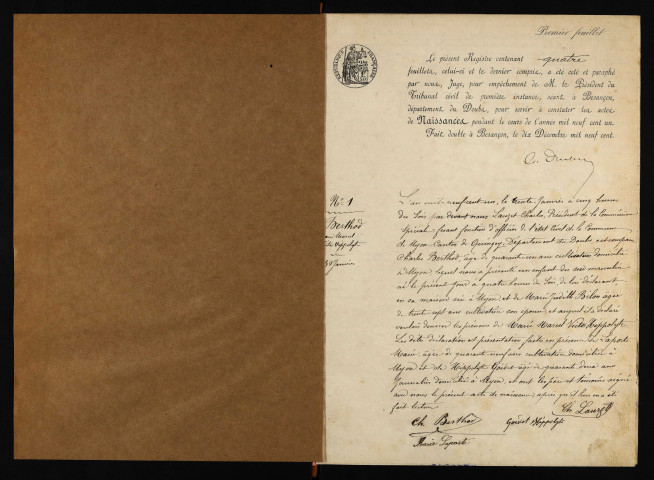 Premier feuillet
Le présent Registre contenant quatre
feuillets, celui-ci et le dernier compris, a été coté et paraphé
par nous, Juge, pour empêchement de M. le Président du
Tribunal civil de première instance, séant à Besançon,
département du Doubs, pour servir à constater les actes
de Naissances pendant le cours de l'année mil neuf cent un.
Fait double à Besançon, le dix Décembre mil neuf cent.
N° 1
Berthod
Marcel
Hippolyte
Janvier
L'an mil neuf cent un, le trente Janvier à cinq heures
du soir par devant nous Lauzet Charles, Président de la Commission
Spéciale faisant fonction d'officier de l'état civil de la Commune
de Myon Canton de Quingey, Département du Doubs est comparu
Charles Berthod, âgé de quarante un ans cultivateur domicilié
à Myon, lequel nous a présenté un enfant du sexe masculin
né le présent jour à quatre heures du soir, de lui déclarant
en sa maison sise à Myon, et de Marie Judith âgée
de trente sept ans cultivatrice son épouse, et auquel il a déclaré
vouloir donner les prénoms de Marie Marcel Victor Hippolyte
Les dites déclaration et présentation faites en présence de Laporte
Marie âgée de quarante neuf ans cultivatrice domiciliée à
Myon et de Hippolyte âgé de quarante deux ans
Journalier domicilié à Myon, et ont les père et témoins signé
avec nous le présent acte de naissance, après qu'il leur en a été
fait lecture
Ch. Lauzet
Ch Berthod
Hippolyte
Marie Laporte